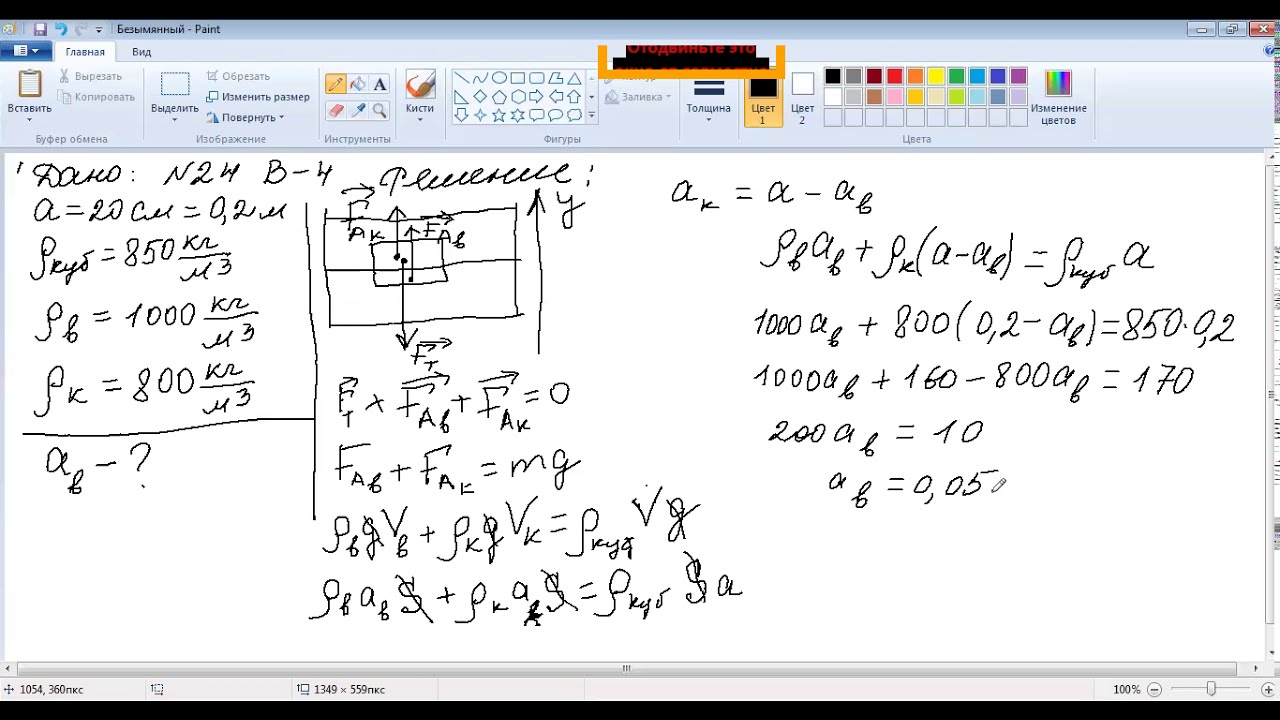 Безымянный - Paint
Главная Вид
Отодвиньте это
Вставить
Вырезать
Копировать
Буфер обмена
Выделить
Обрезать
Изменить размер
Повернуть
Изображение
Инструменты
Кисти
Контур
Заливка
Фигуры
Толщина
Цвет 1
Цвет 2
Изменение цветов
Цвета
Дано: №24 В-4 Решение:
a = 20 см = 0,2 м
ρкуб = 850 кг/м³
ρв = 1000 кг/м³
ρк = 800 кг/м³
aв - ?
FАк FАв y
Fт
Fт + FАв + FАк = 0
FАв + FАк = mg
ρв g Vв + ρк g Vк = ρкуб V g
ρв aв S + ρк aк S = ρкуб S a
aк = a - aв
ρв aв + ρк (a - aв) = ρкуб a
1000aв + 800(0,2 - aв) = 850·0,2
1000aв + 160 - 800aв = 170
200aв = 10
aв = 0,05
1054, 360пкс
1349 × 559пкс
100%